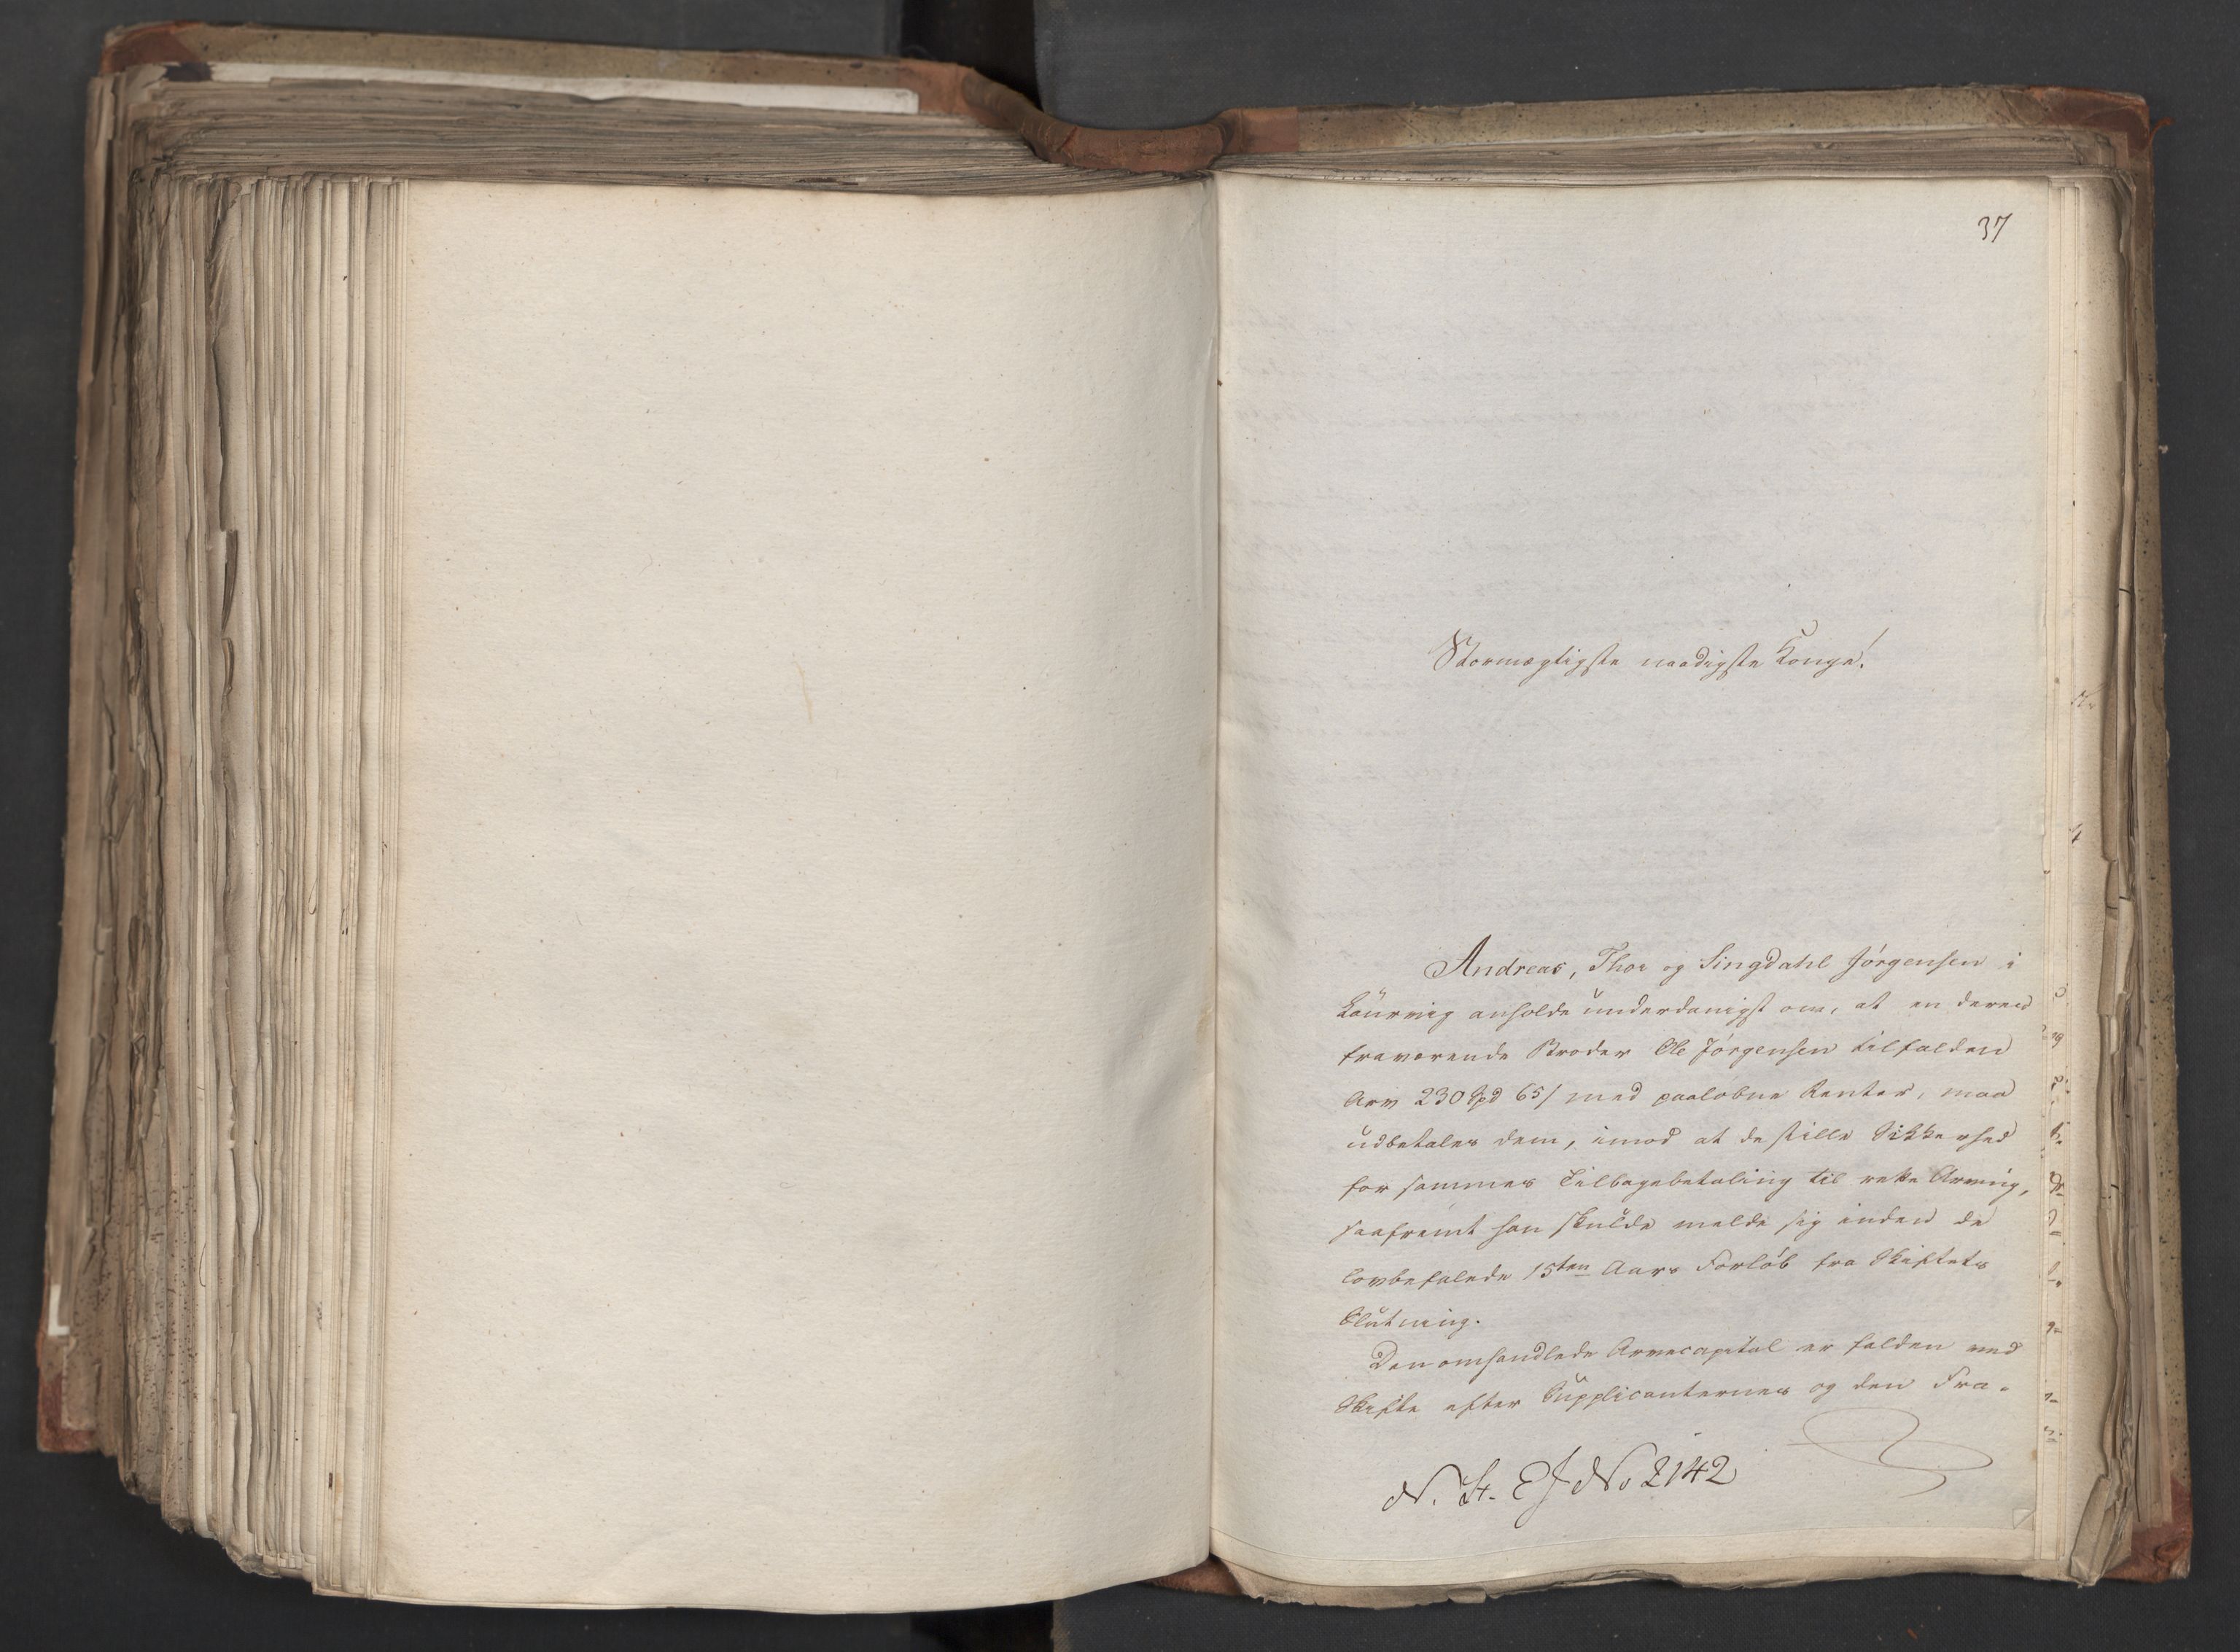 37
Stormægtigste naadigste Konge!
Andreas, Thor og Lingdahl Jørgensen i
Laurvig anholde underdanigst om, at en deres
fraværende Broder Ole Jørgensen tilfalden
Arv 230 Spd 65 / med paaløbne Renter, maa
udbetales dem, imod at de stille Sikkerhed
for sammes Tilbagebetaling til rette Arving,
saafremt han skulde melde sig inden de
lovbefalede 15ten Aars Forløb fra Skiftets
Slutning.
Den omhandlede Arvecapital er falden ved
Skifte efter Supplicanternes og den Fra-
N. St. E J No 2142